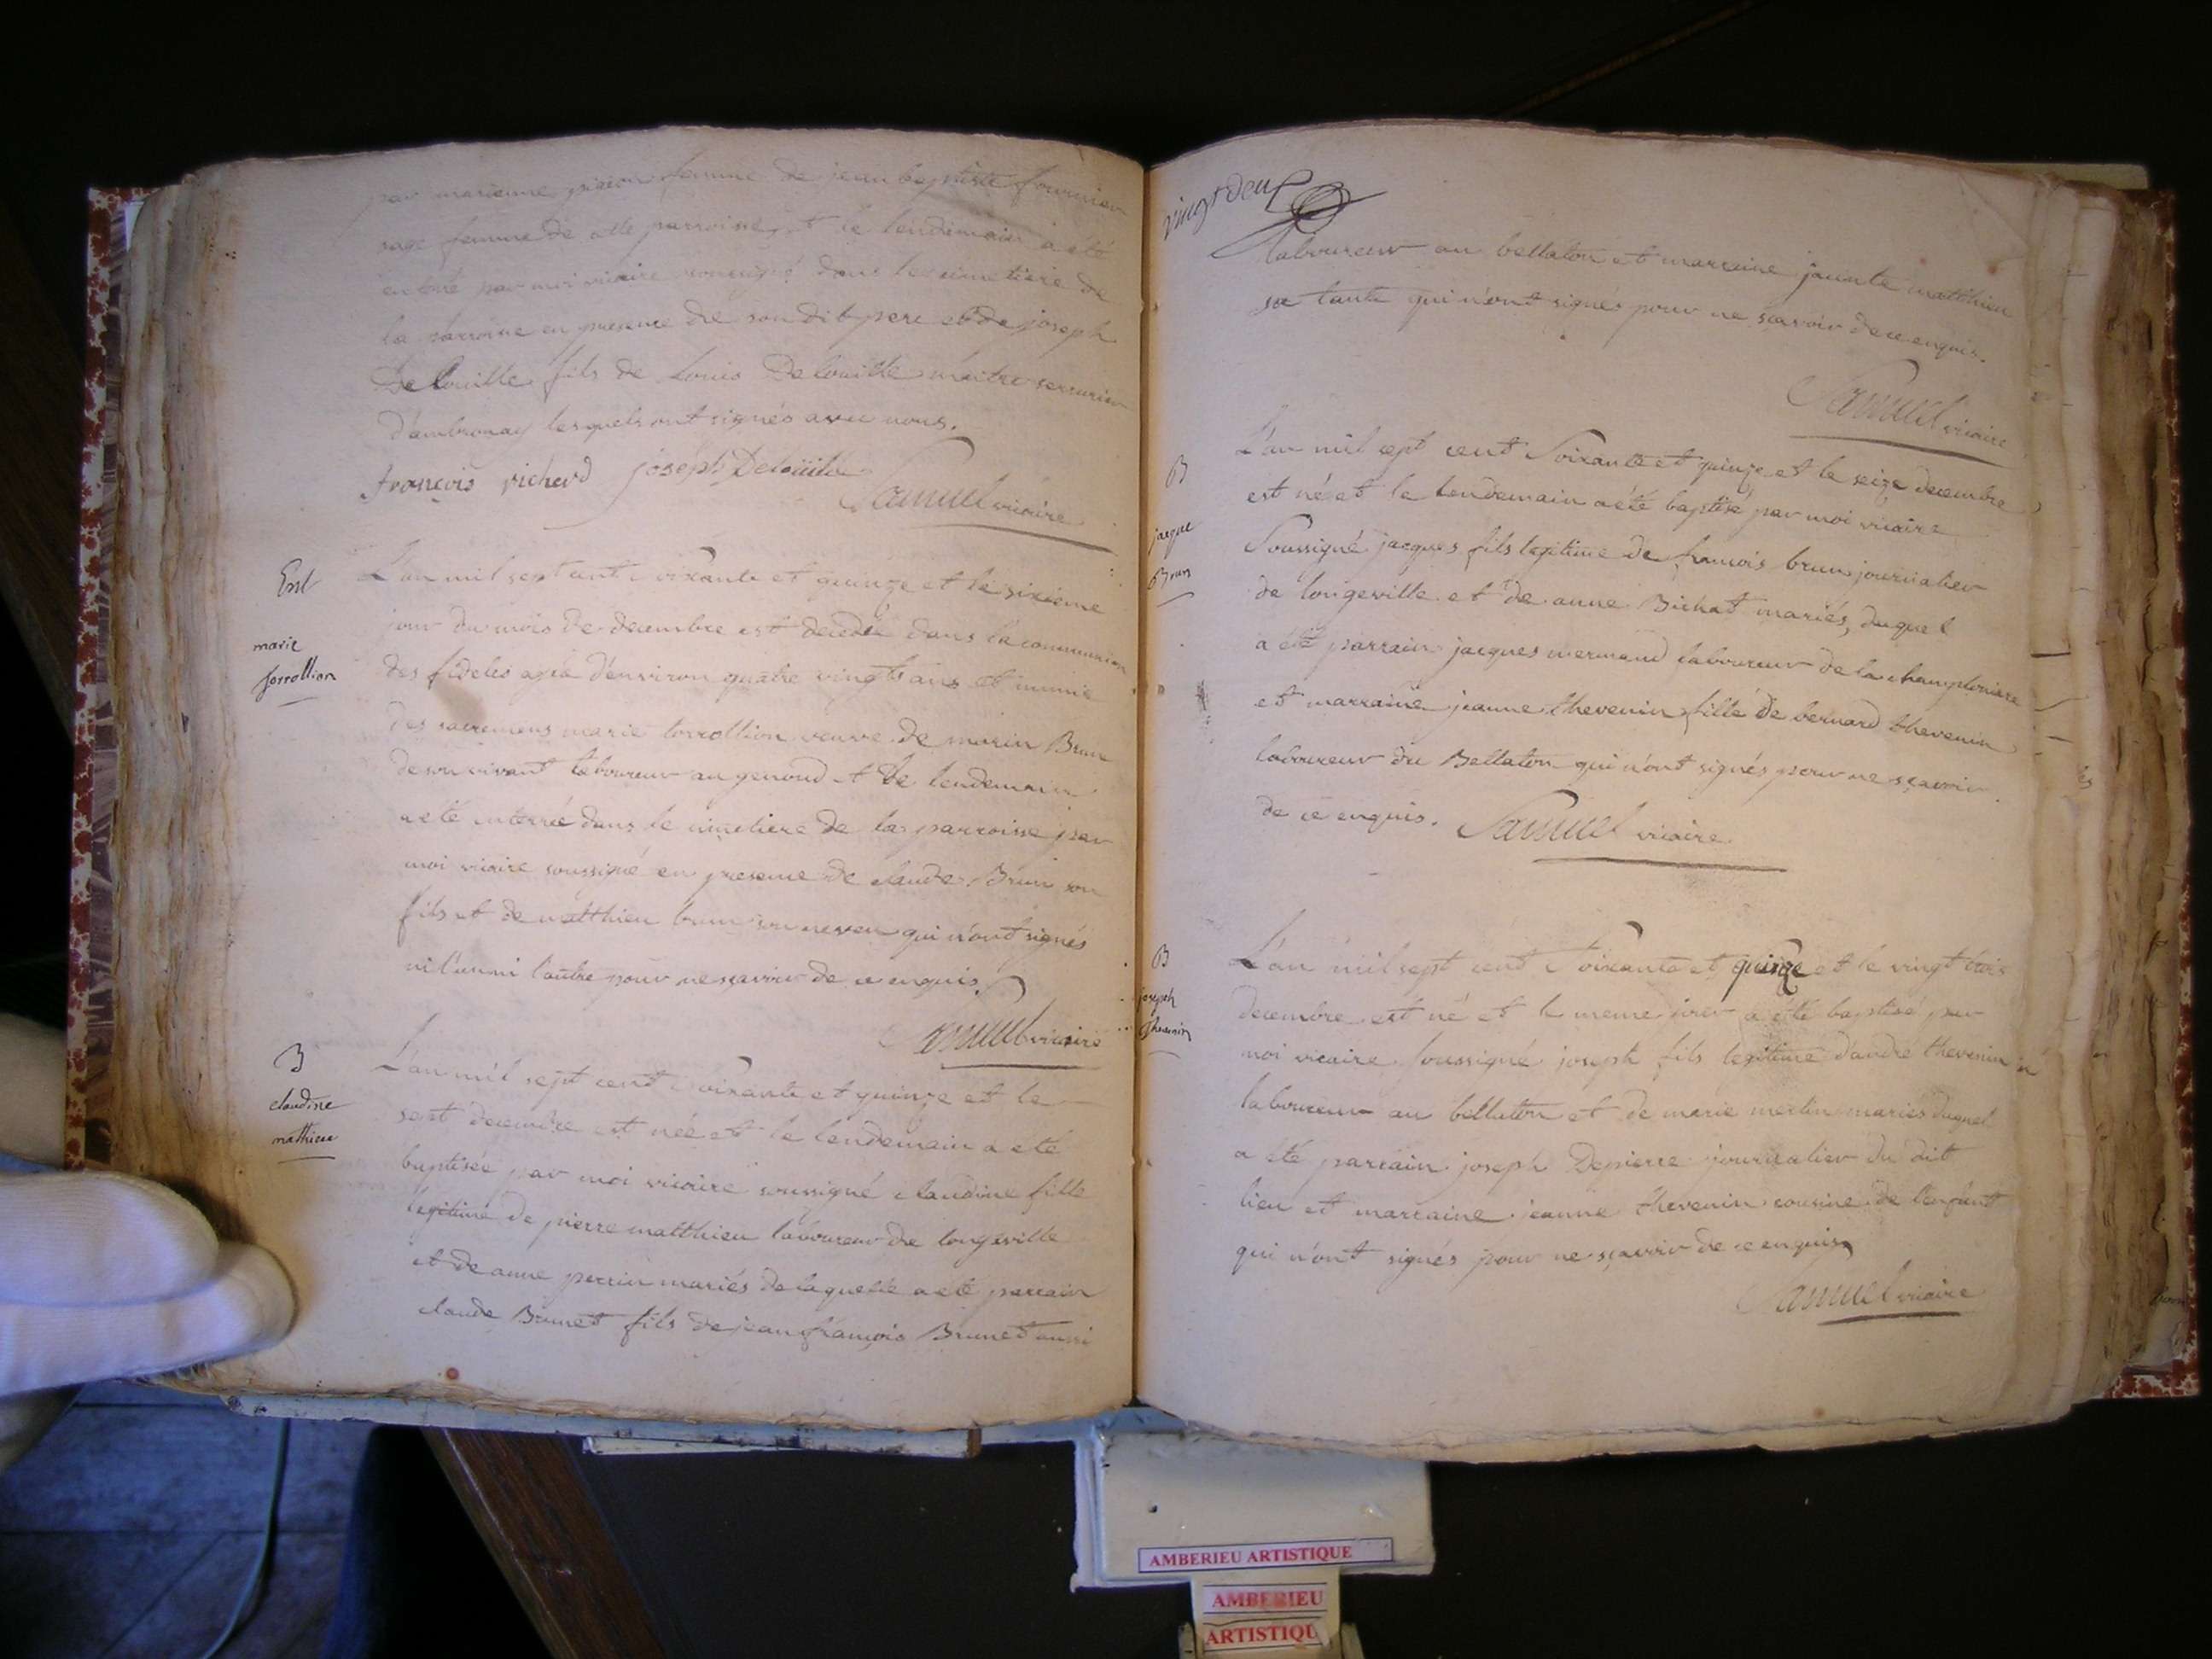 par marienne pigeon femme de jean baptiste fournier
sage femme de cette parroisse, et le lendemain a eté
enterré par moi vicaire soussigné dans le cimetiere de
la parroisse en presence de son dit pere et de joseph
Delouille fils de Louis Delouille maitre serrurier
d'ambronay lesquels ont signés avec nous.
françois richerd joseph Delouille
Samuel vicaire
Ent
marie
forrollion
L'an mil sept cent soixante et quinze et le sixieme
jour du mois de decembre est decedée dans la communion
des fideles agée d'environ quatre vingts ans et munie
des sacremens marie forrollion veuve de marin Brun
de son vivant laboureur au genoud et le lendemain
a eté enterrée dans le cimetiere de la parroisse par
moi vicaire soussigné en presence de claude Brun son
fils et de matthieu brun son neveu qui n'ont signés
ni l'un ni l'autre pour ne sçavoir de ce enquis.
Samuel vicaire
B
claudine
mathieu
L'an mil sept cent soixante et quinze et le
sept decembre est née et le lendemain a eté
baptisée par moi vicaire soussigné claudine fille
legitime de pierre matthieu laboureur de longeville
et de anne perrin mariés de laquelle a eté parrain
claude Brunet fils de jean françois Brunet aussi
vingt deux
laboureur au bellaton et marraine matthieu
sa tante qui n'ont signés pour ne sçavoir de ce enquis.
Samuel vicaire
B
jacque
Brun
L'an mil sept cent soixante et quinze et le seize decembre
est né et le lendemain a eté baptisé par moi vicaire
Soussigné jacques fils legitime de françois brun journalier
de longeville et de anne Bichat mariés, duquel
a eté parrain jacques mermand laboureur de la champloniere
et marraine jeanne thevenin fille de bernard thevenin
laboureur du Bellaton qui n'ont signés pour ne sçavoir
de ce enquis. Samuel vicaire
B
joseph
Thevenin
L'an mil sept cent soixante et quinze et le vingt trois
decembre est né et le meme jour a eté baptisé par
moi vicaire soussigné joseph fils legitime d'andré thevenin
laboureur au bellaton et de marie merlin mariés duquel
a eté parrain joseph Depierre journalier du dit
lieu et marraine jeanne thevenin cousine de l'enfant
qui n'ont signés pour ne sçavoir de ce enquis
Samuel vicaire
AMBERIEU ARTISTIQUE
AMBERIEU
ARTISTIQU